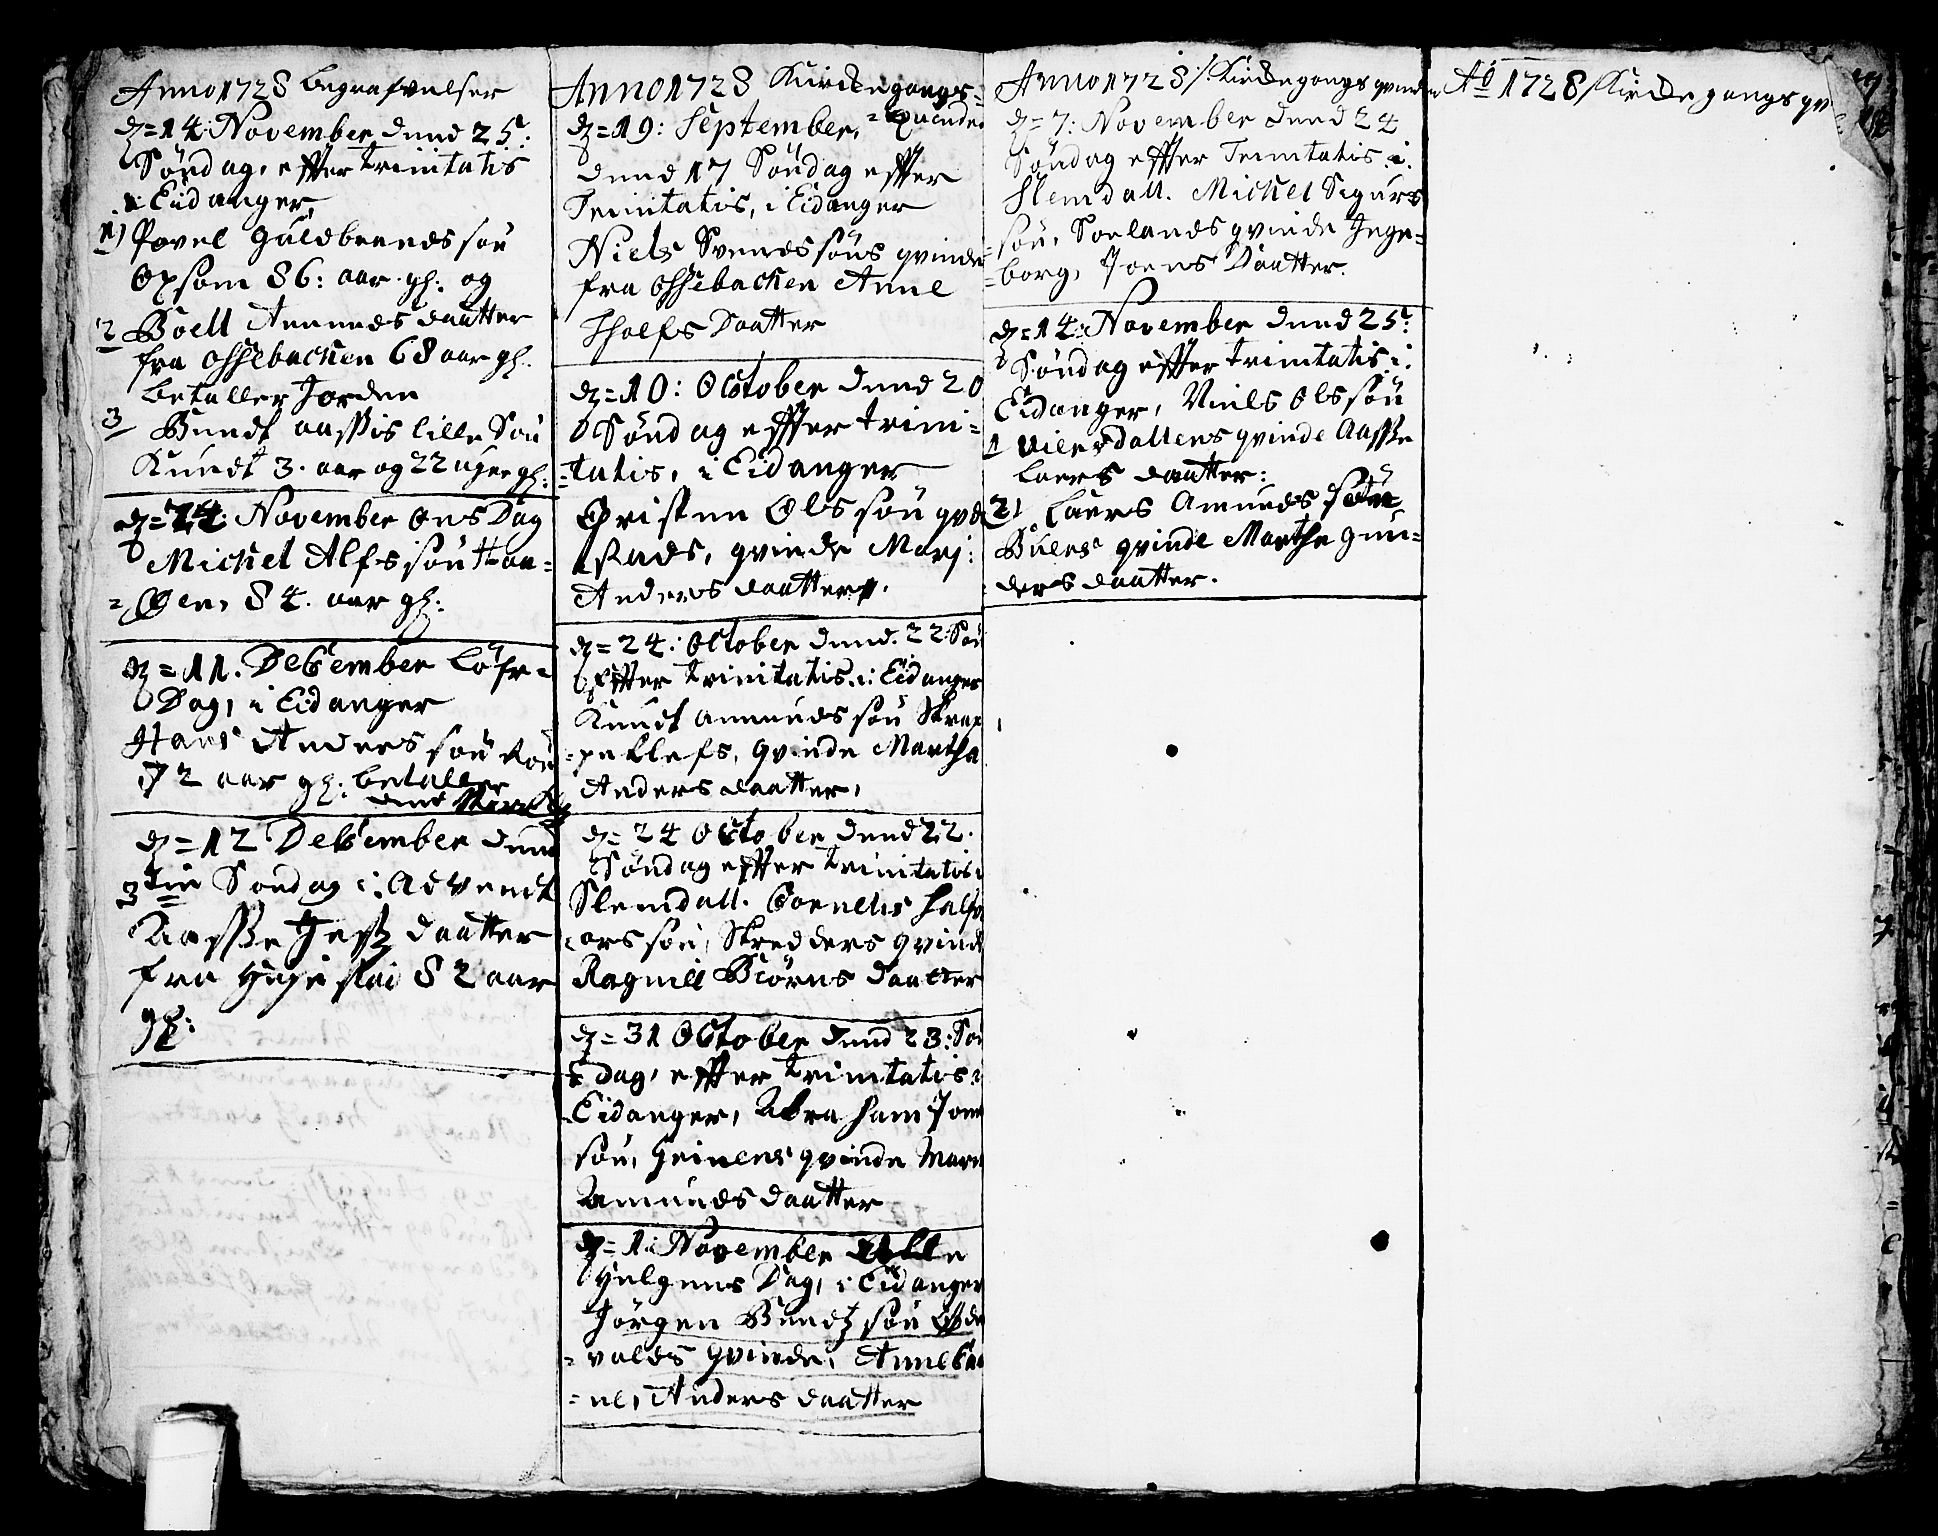 Anno 1728 Begrafvelser
dz=14: November dend 25:
Söndag, effter trinitatis
i Eidanger
1) Povel Guldbrends søn
Opsom 86: aar gl: og
2 Boell Amunds daatter
fra Ossebacken 68 aar gl.
betaller Jorden
3 Bendt aassis lille Søn
Knudt 3. aar og 22 uger gl:
dz=24: November Ons Dag
Michel Alfs søn Haa=
=gen, 84. aar gl:
dz=11. December Löfr=
Dag, i Eidanger
Hans Anders søn
72 aar gl: betaller
dz=12 December dend
3die Søndag i: Advendt
Aasse Jeß daatter
fra 82 aar
gl:
Anno 1728 Kirckegangs=
=qvinder
dz=19: September,
dend 17 Söndag effter
Trinitatis, i Eidanger
Niels Svends søns qvinde
fra Ossebacken Anne
Tholfs Daatter
dz=10: October dend 20
Söndag effter trini=
=tatis, i Eidanger
Christen Ols søn
qvinde Marj:
Anders daatter.
dz=24: October dend. 22: Søn
effter trinitatis. i: Eidanger
Knudt Amunds søn Skrep
=peklefs, qvinde Martha
Anders daatter,
dz=24 October dend 22.
Söndag effter trinitatis i
Slemdall. Cornelis Halfv
=ors søn, Skredders qvinde
Ragnill Biörns daatter
dz=31 October dend 23: Søn
=dag, effter trinitatis i
Eidanger, Abraham Joens
søn, Grinens qvinde Mare
Amunds daatter
dz=1: November Alle
Helgens Dag, i Eidanger
Jörgen Bendtz søn
=valds qvinde, Anne Ca
=ne, Anders daatter
Anno 1728 /: Kirckegangs qvinder
dz=7: November dend 24
Söndag effter Trinitatis i.
Slemdall. Michel Sigurs
=søn, Sørlands qvinde Inge=
=borg, Joens Daatter.
dz=14: November dend 25:
Söndag effter trinitatis i.
Eidanger, Niels Ols søn
1 Viersdallens qvinde Aasse
Laers daatter:
2) Laers Amunds søn
Bülers qvinde Marthe Gun=
ders daatter.
Aō 1728 / Kircke gangs qv